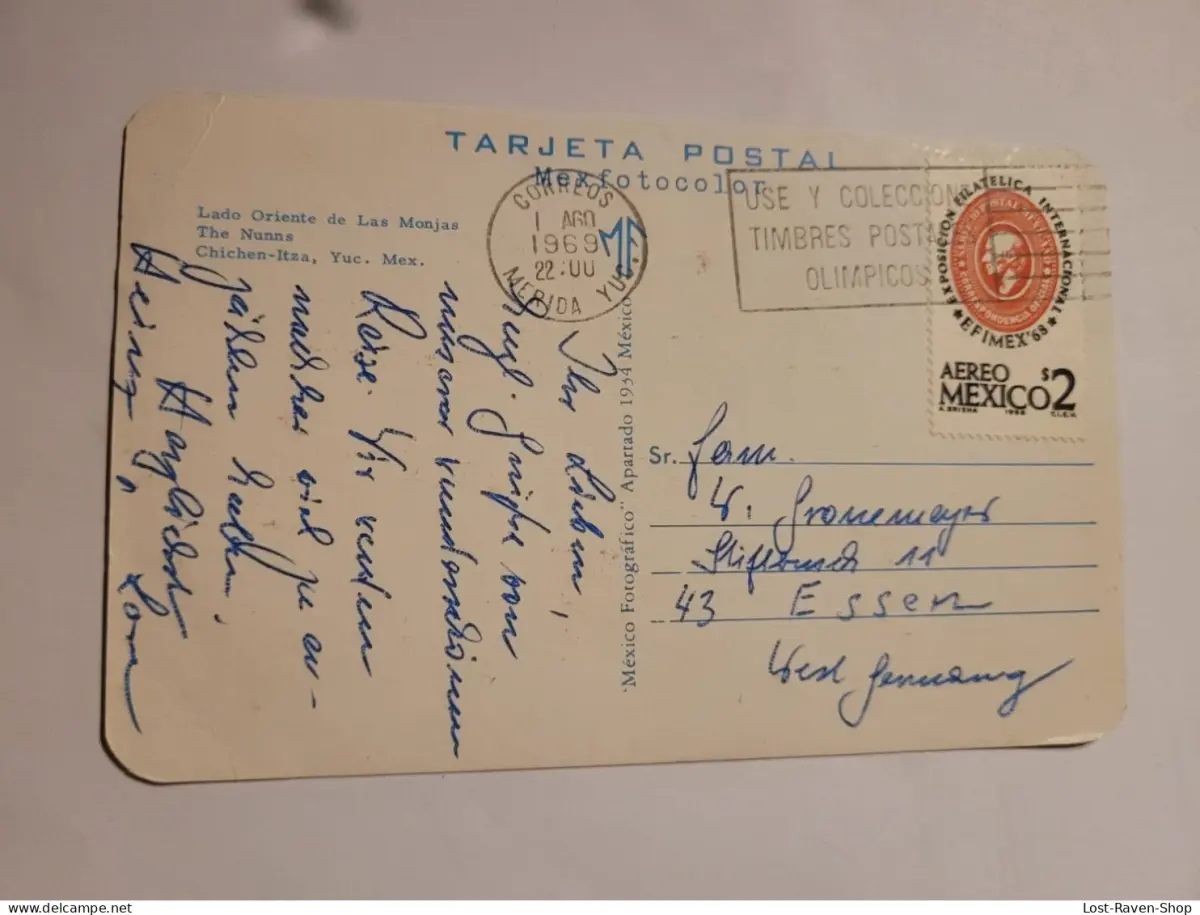 TARJETA POSTAL
Mexfotocolor
Lado Oriente de Las Monjas
The Nunns
Chichen-Itza, Yuc. Mex.
CORREOS
1 AGO
1969
22:00
MERIDA YUC.
USE Y COLECCION
TIMBRES POSTA
OLIMPICOS
EXPOSICION FILATELICA INTERNACIONAL
★ EFIMEX'68 ★
AEREO
MEXICO $2
1968
T.I.E.V.
"México Fotográfico" Apartado 1934 México
Ihr Lieben,
Grüße von
unserer wunderschönen
Reise. Wir werden
nachher viel zu er-
zählen haben.
Herzlichst
Heinz
Sr. Fam.
W. Gronemeyer
11
43 Essen
West Germany
Lost-Raven-Shop